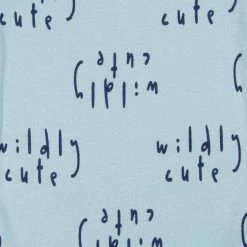 wildly
cute
wildly
cute
wildly
cute
wildly
cute
wildly
cute
wildly
cute